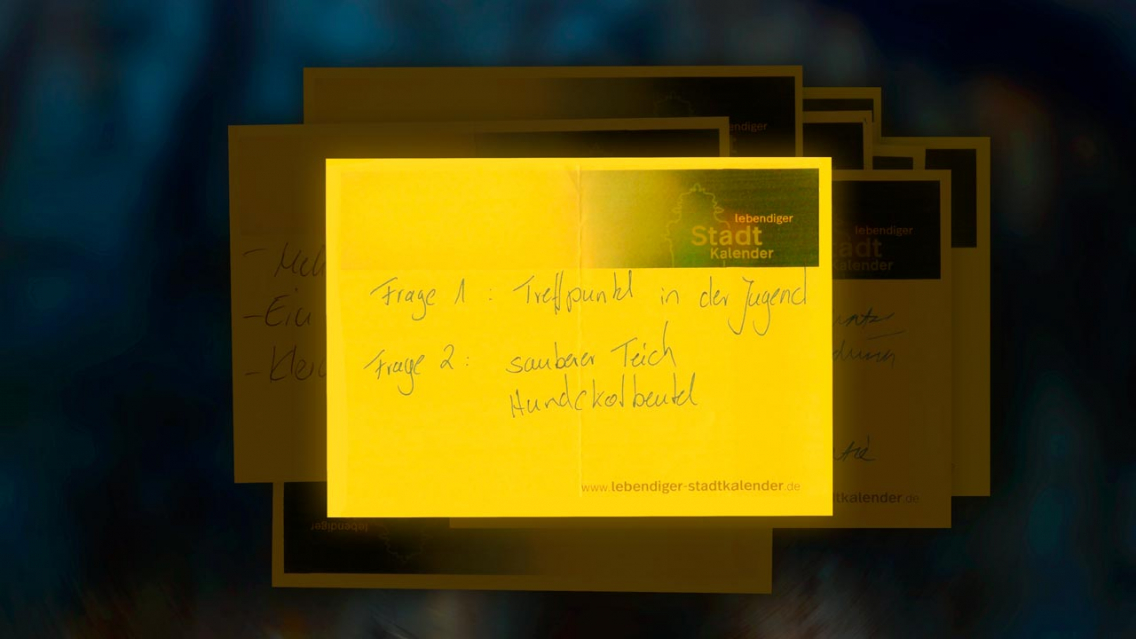 lebendiger
Stadt
Kalender
Frage 1 : Treffpunkt in der Jugend
Frage 2 : sauberer Teich
Hundekotbeutel
www.lebendiger-stadtkalender.de
endiger
lebendiger
adt
alender
- Meh
- Ein
- Klei
tkalender.de
lebendiger